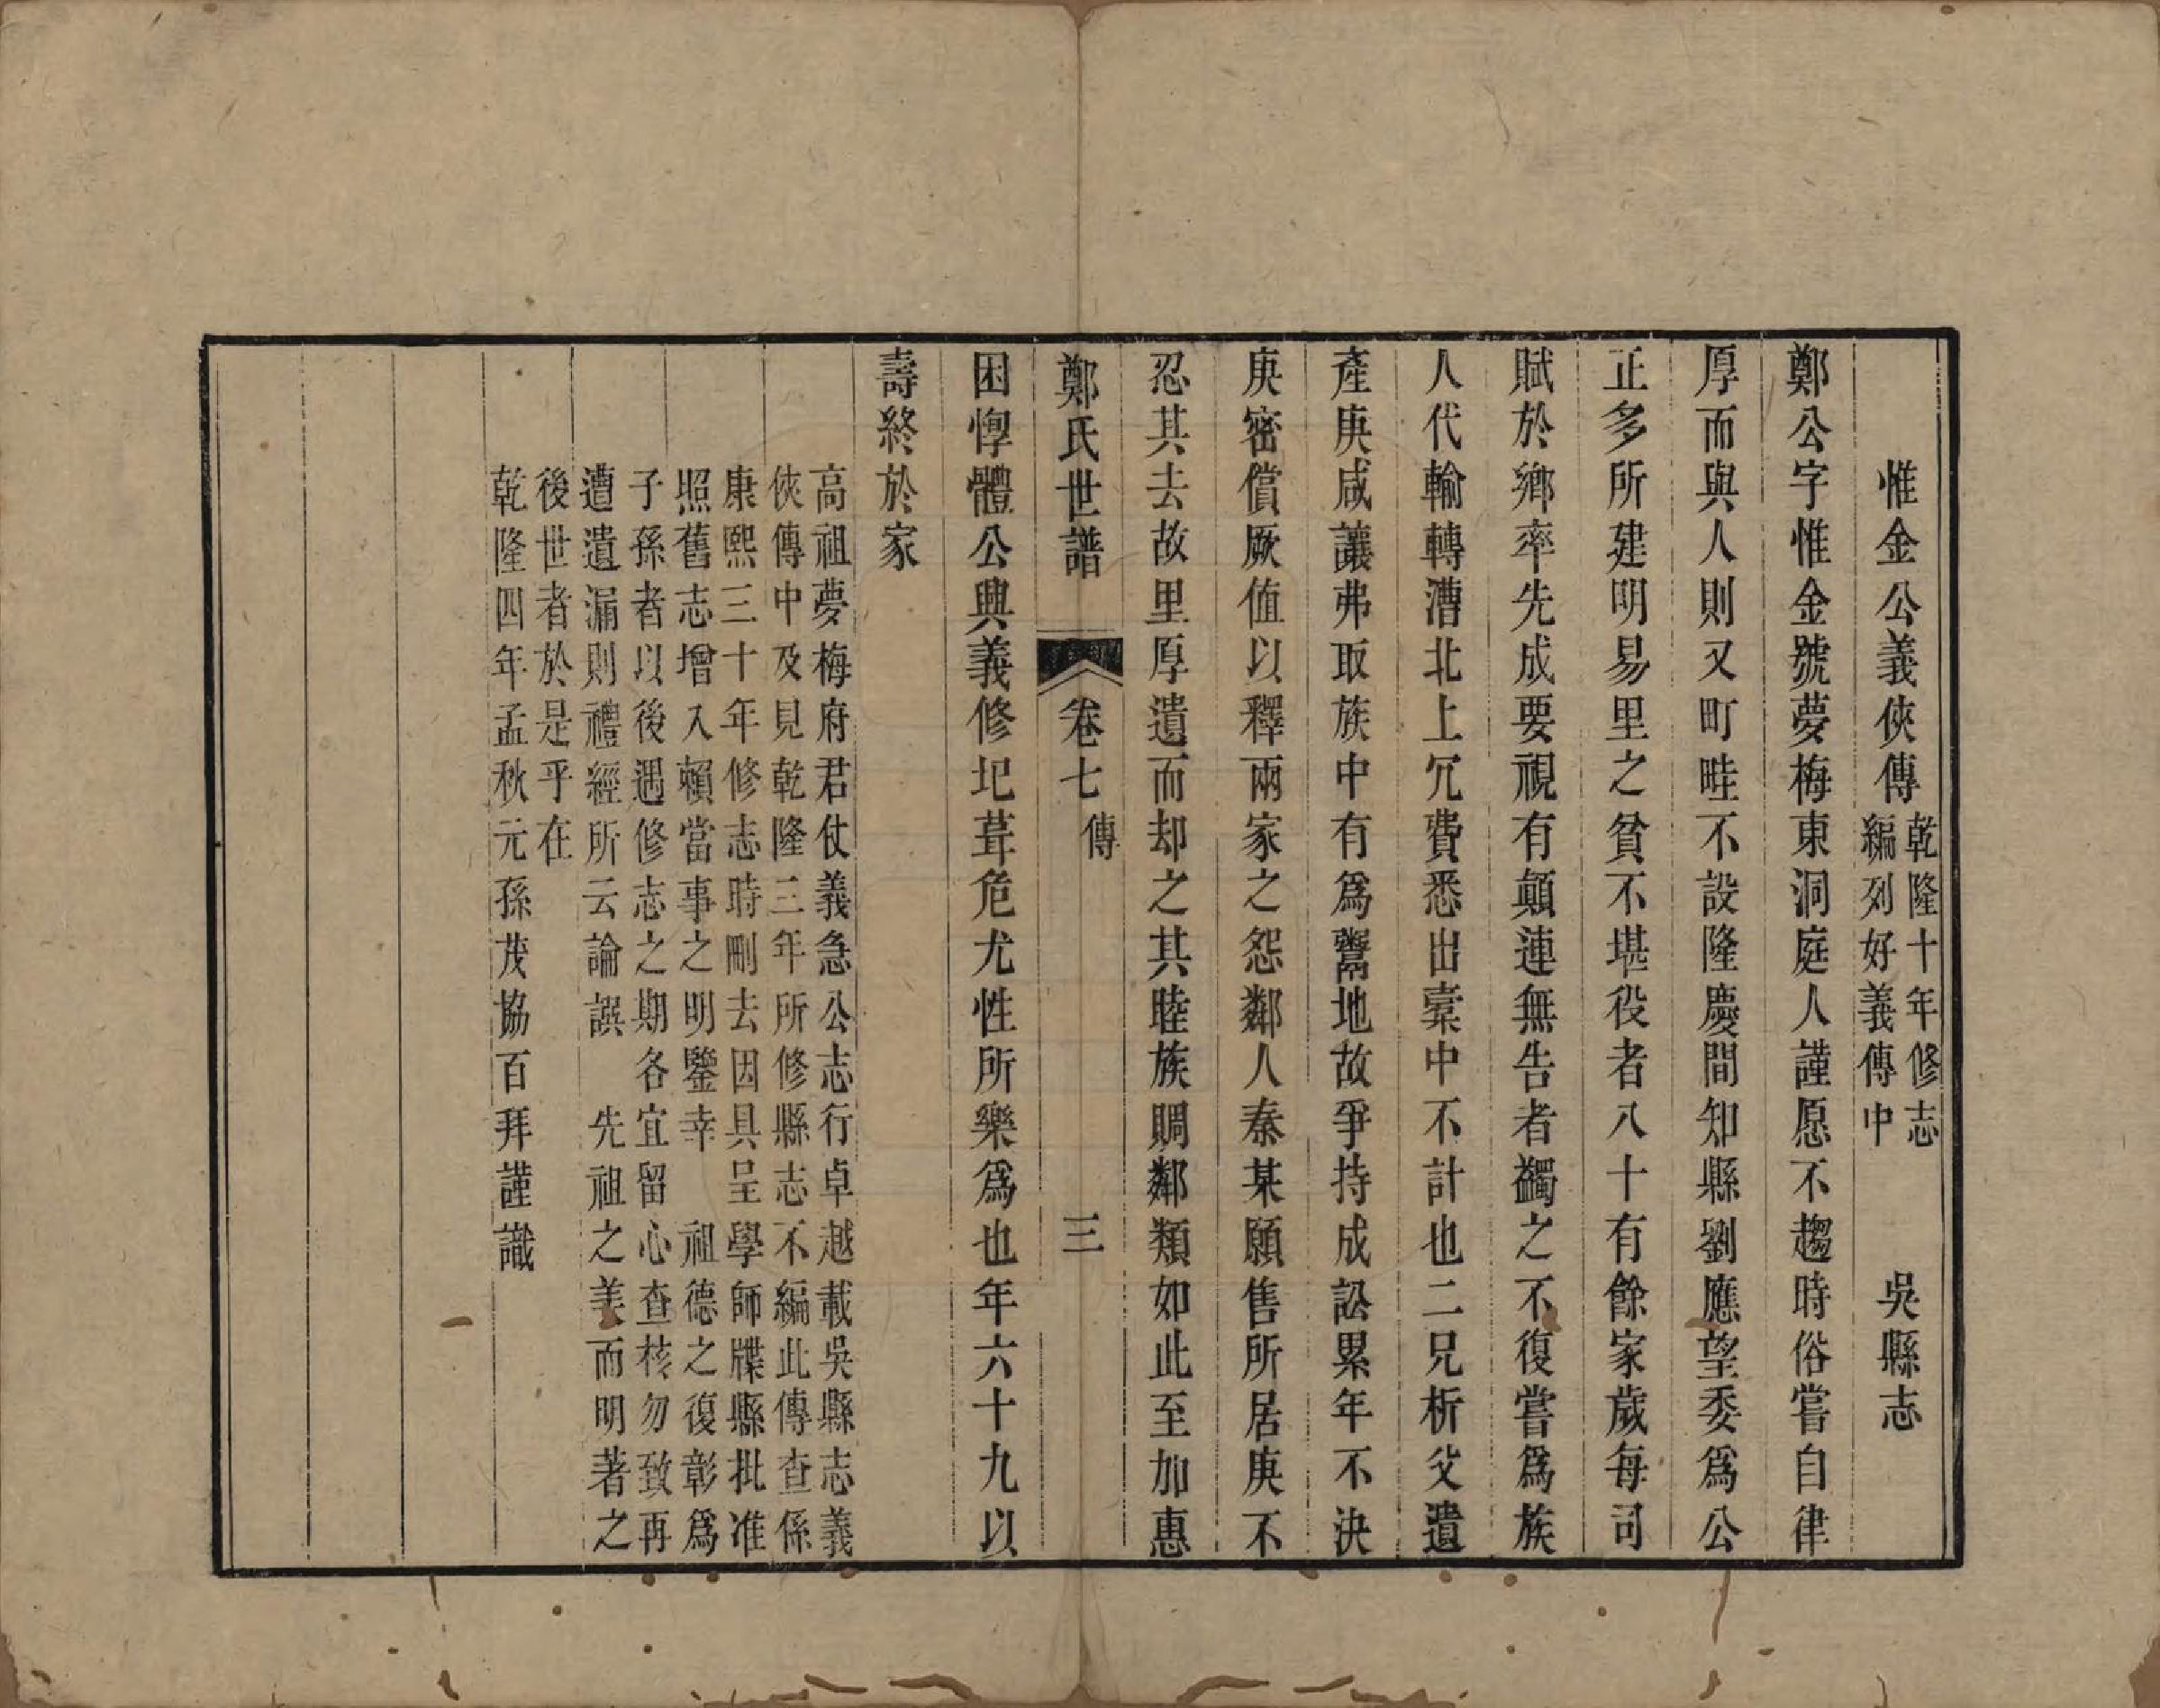 惟金公義俠傳 乾隆十年修志 編列好義傳中 吳縣志
鄭公字惟金號夢梅東洞庭人謹愿不趨時俗嘗自律
厚而與人則又町畦不設隆慶間知縣劉應望委爲公
正多所建明易里之貧不堪役者八十有餘家歲每司
賦於鄉率先成要視有顛連無告者蠲之不復嘗爲族
人代輸轉漕北上冗費悉出橐中不計也二兄析父遺
產庚咸讓弗取族中有爲鬻地故爭持成訟累年不決
庚密償厥值以釋兩家之怨鄰人秦某願售所居庚不
忍其去故里厚遺而却之其睦族賙鄰類如此至加惠
鄭氏世譜 卷七 傳 三
困惸體公興義修圮葺危尤性所樂爲也年六十九以
壽終於家
高祖夢梅府君仗義急公志行卓越載吳縣志義
俠傳中及見乾隆三年所修縣志不編此傳查係
康熙三十年修志時刪去因具呈學師牒縣批准
照舊志增入賴當事之明鑒幸 祖德之復彰爲
子孫者以後遇修志之期各宜留心查核勿致再
遭遺漏則禮經所云論譔 先祖之美而明著之
後世者於是乎在
乾隆四年孟秋元孫茂協百拜謹識